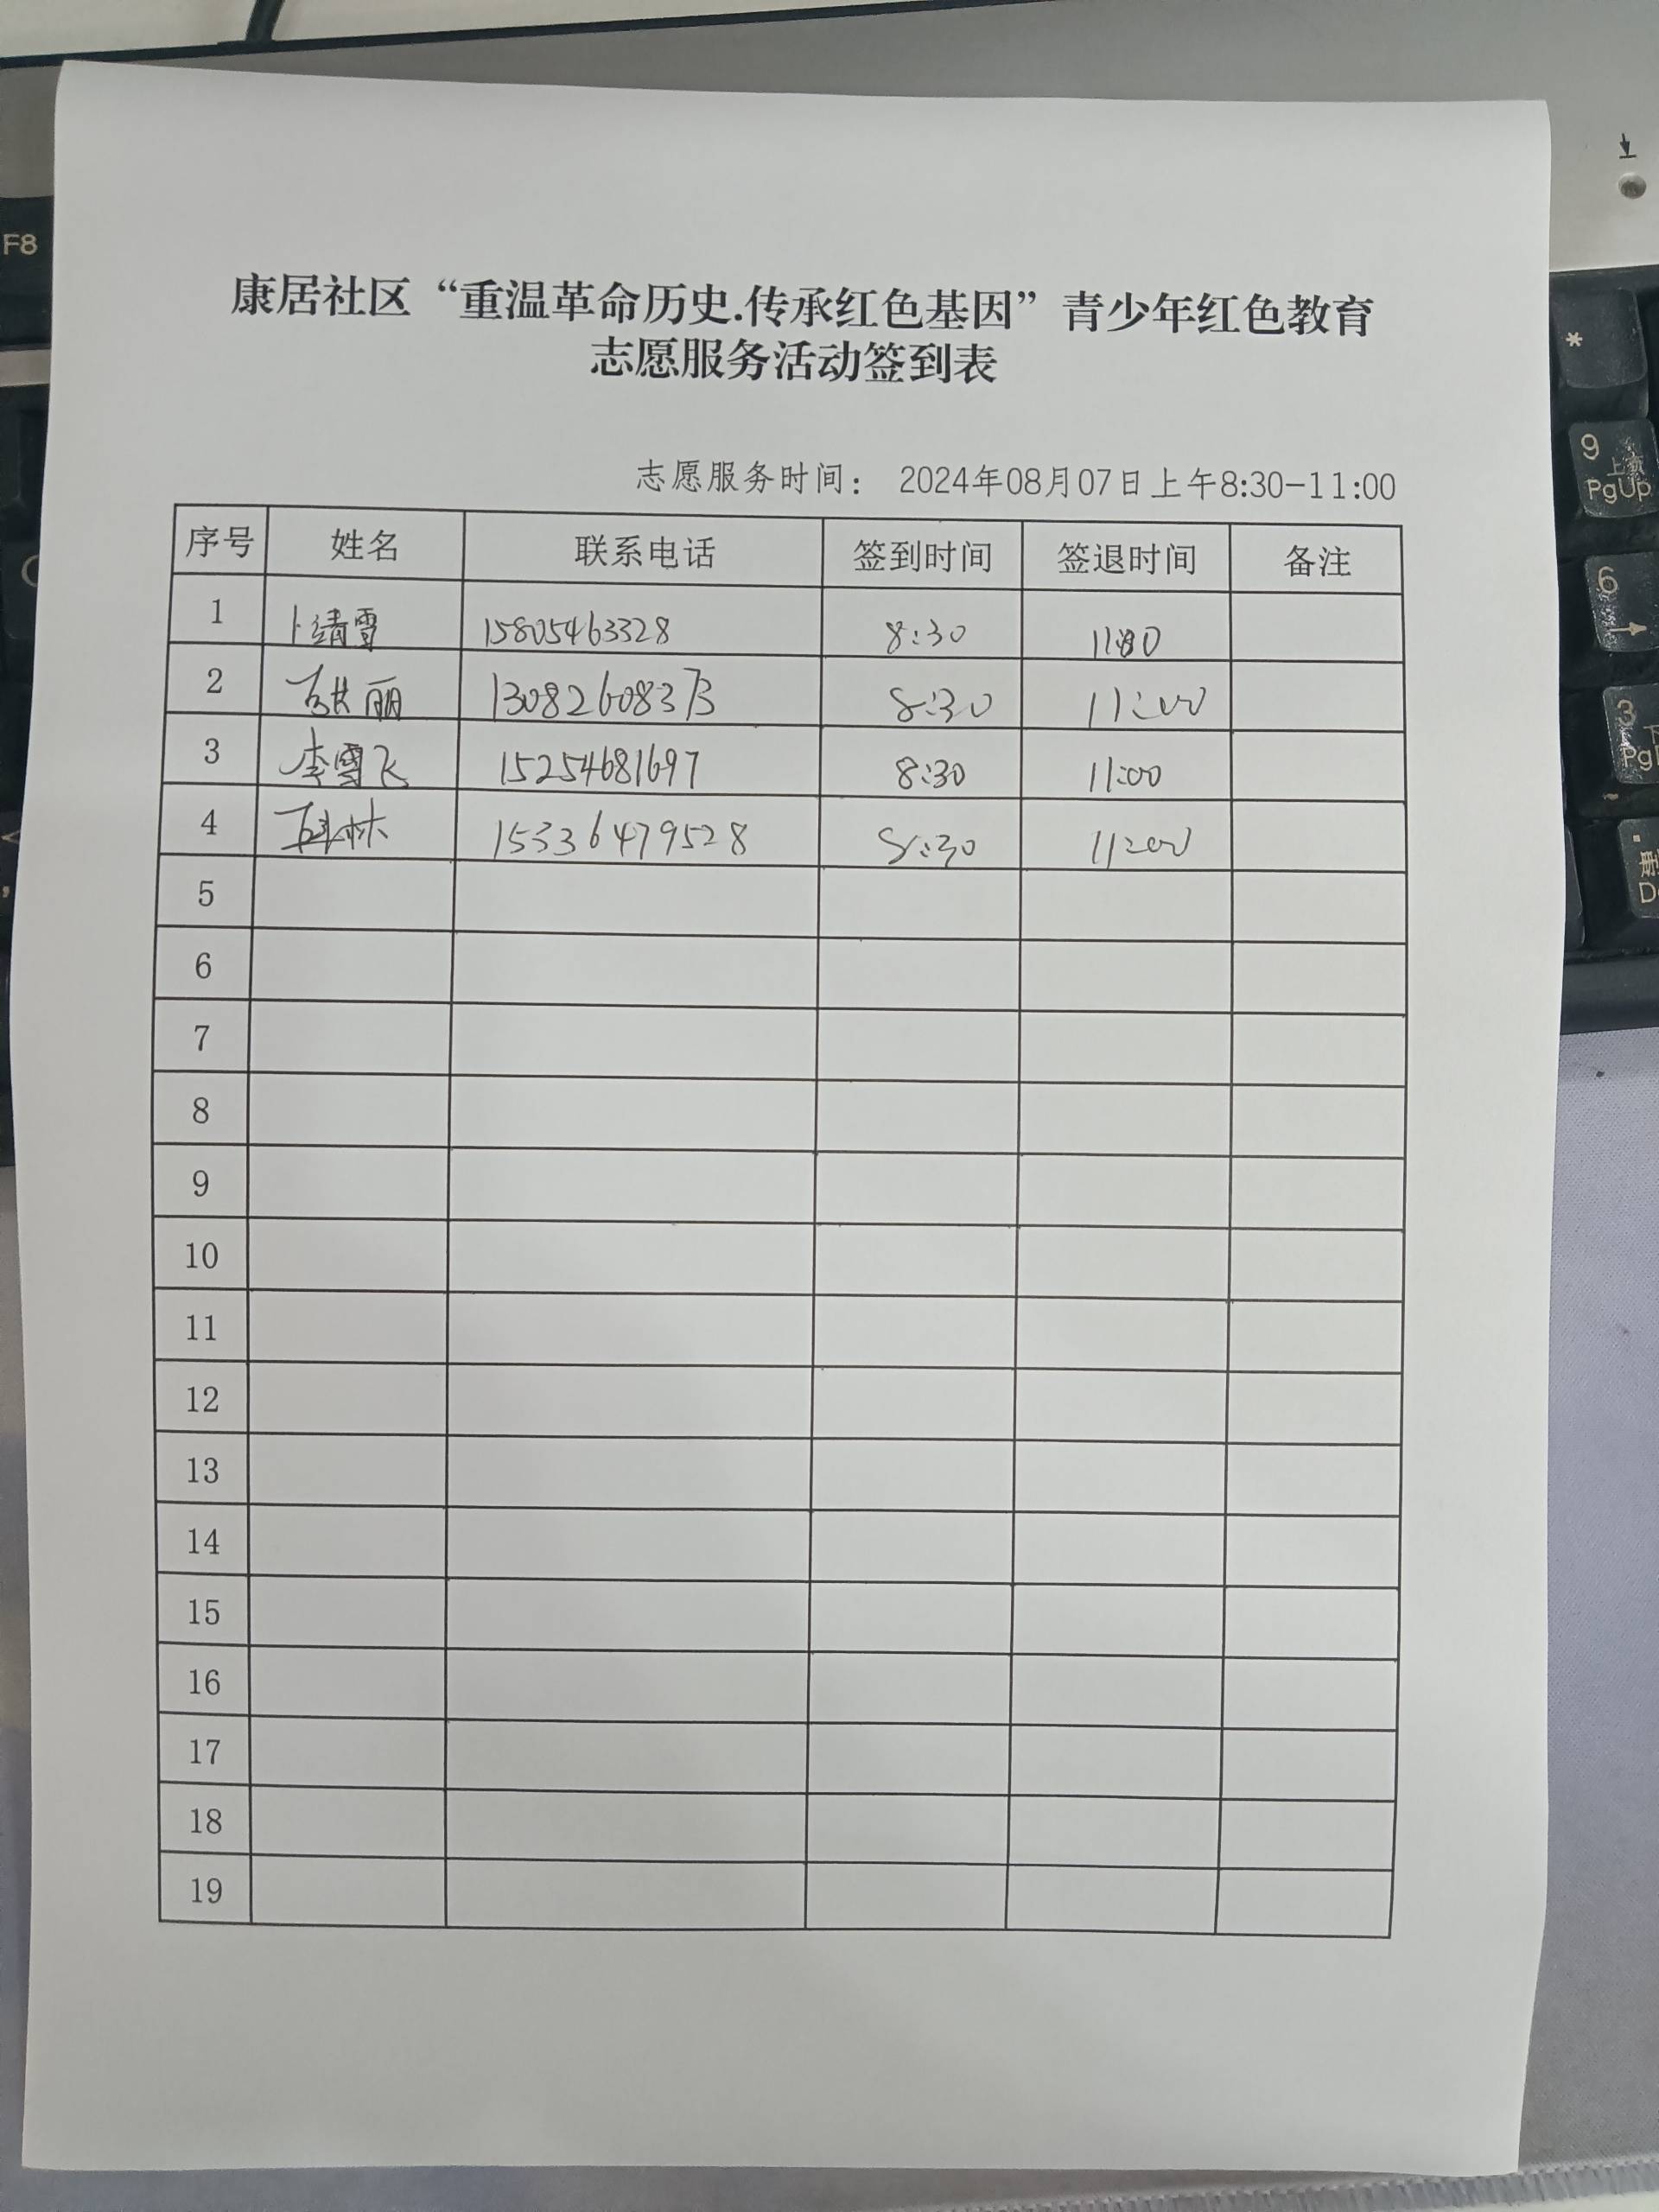 康居社区“重温革命历史.传承红色基因”青少年红色教育
志愿服务活动签到表
志愿服务时间： 2024年08月07日上午8:30-11:00
序号 姓名 联系电话 签到时间 签退时间 备注
1 卜靖雪 15805463328 8:30 11:00
2 丽 13082608373 8:30 11:00
3 李雪飞 15254681697 8:30 11:00
4 林 15336479528 8:30 11:00
5
6
7
8
9
10
11
12
13
14
15
16
17
18
19
F8
*
9
PgUp
6
3